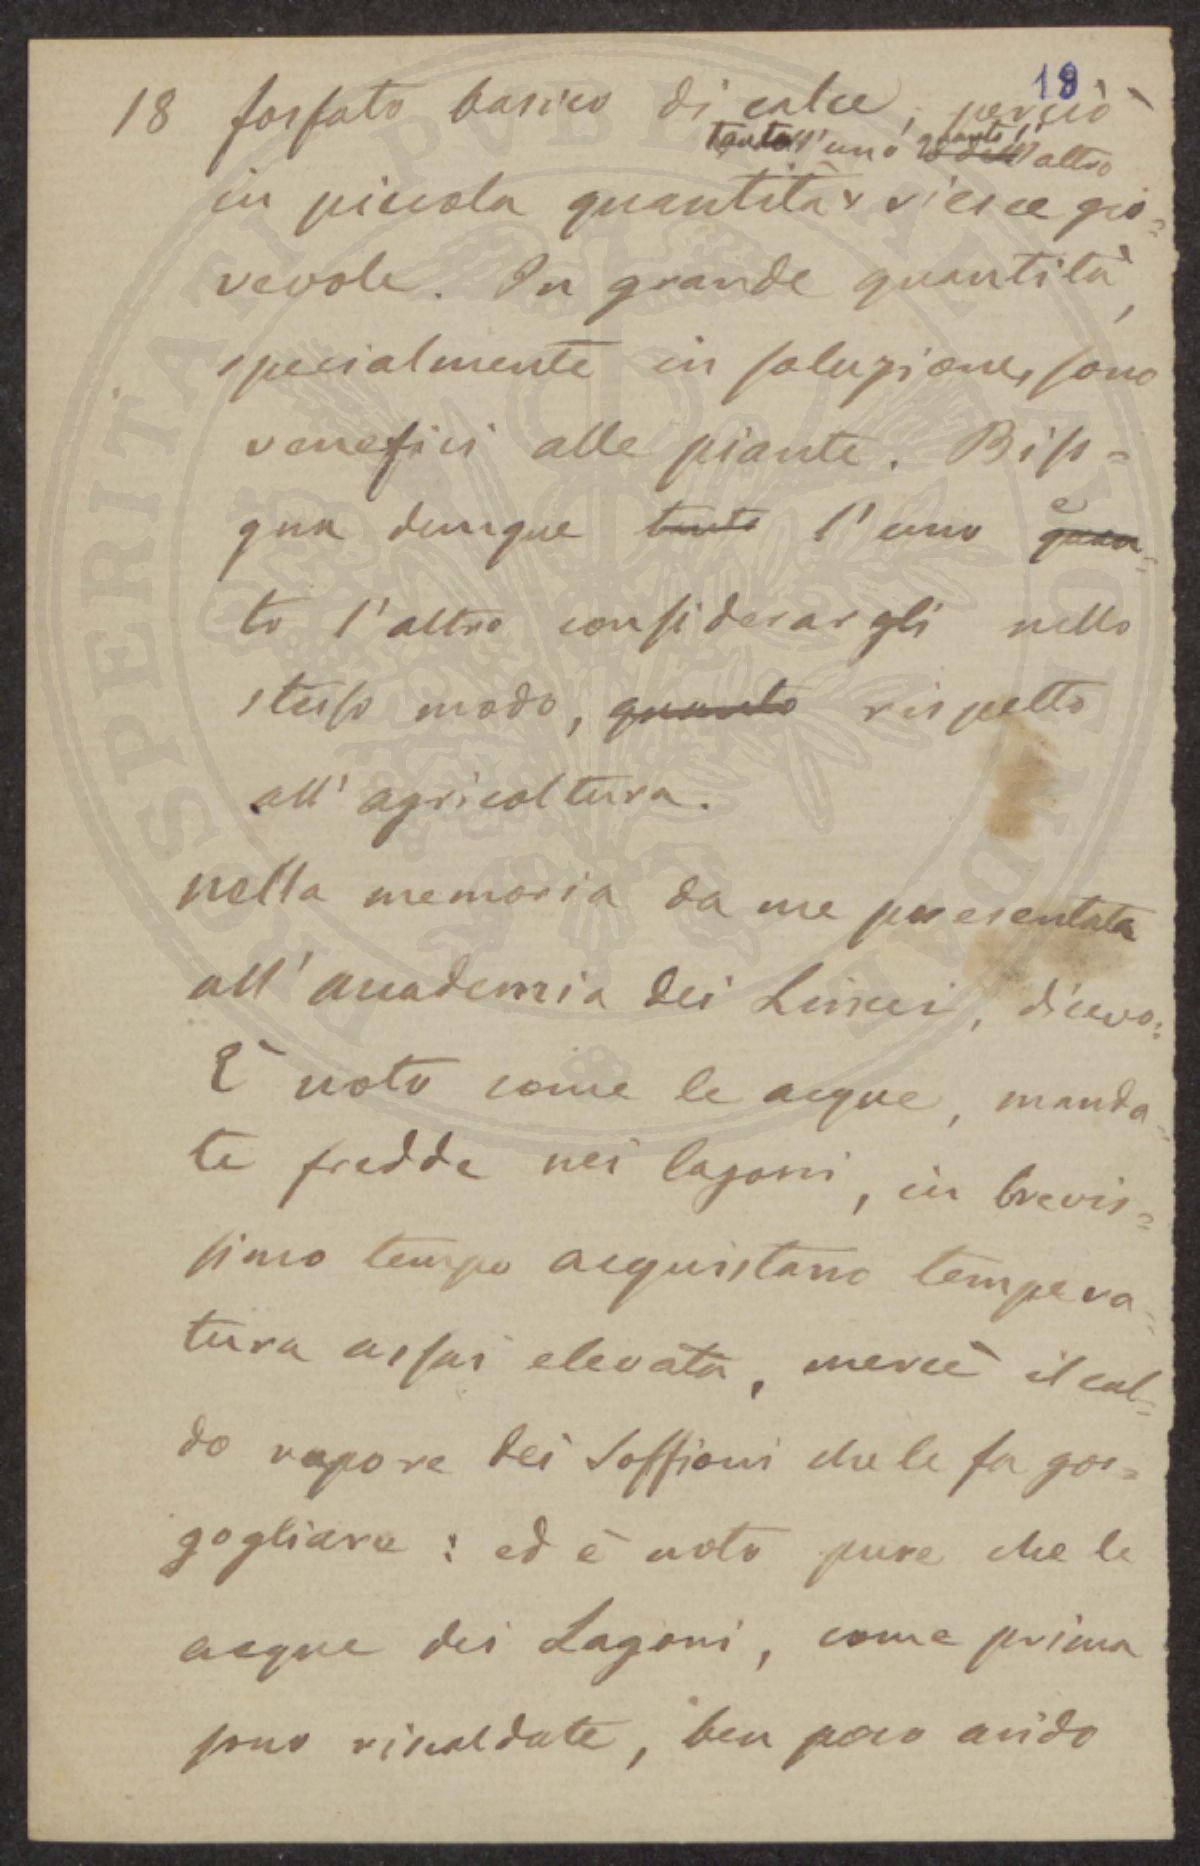 18
18 fosfato basico di calce, perciò
tanto l'uno quanto l'altro
in piccola quantità riesce gio=
vevole. In grande quantità,
specialmente in soluzione, sono
venefici alle piante. Biso=
gna dunque tanto l'uno e quan=
to l'altro considerargli nello
stesso modo, quanto rispetto
all'agricoltura.
nella memoria da me presentata
all'accademia dei Lincei, dicevo:
È noto come le acque, manda=
te fredde nei lagoni, in brevis=
simo tempo acquistano tempera=
tura assai elevata, mercè il cal=
do vapore dei Soffioni che le fa gor=
gogliare: ed è noto pure che le
acque dei Lagoni, come prima
sono riscaldate, ben poco acido
ASPERITATI PVBL